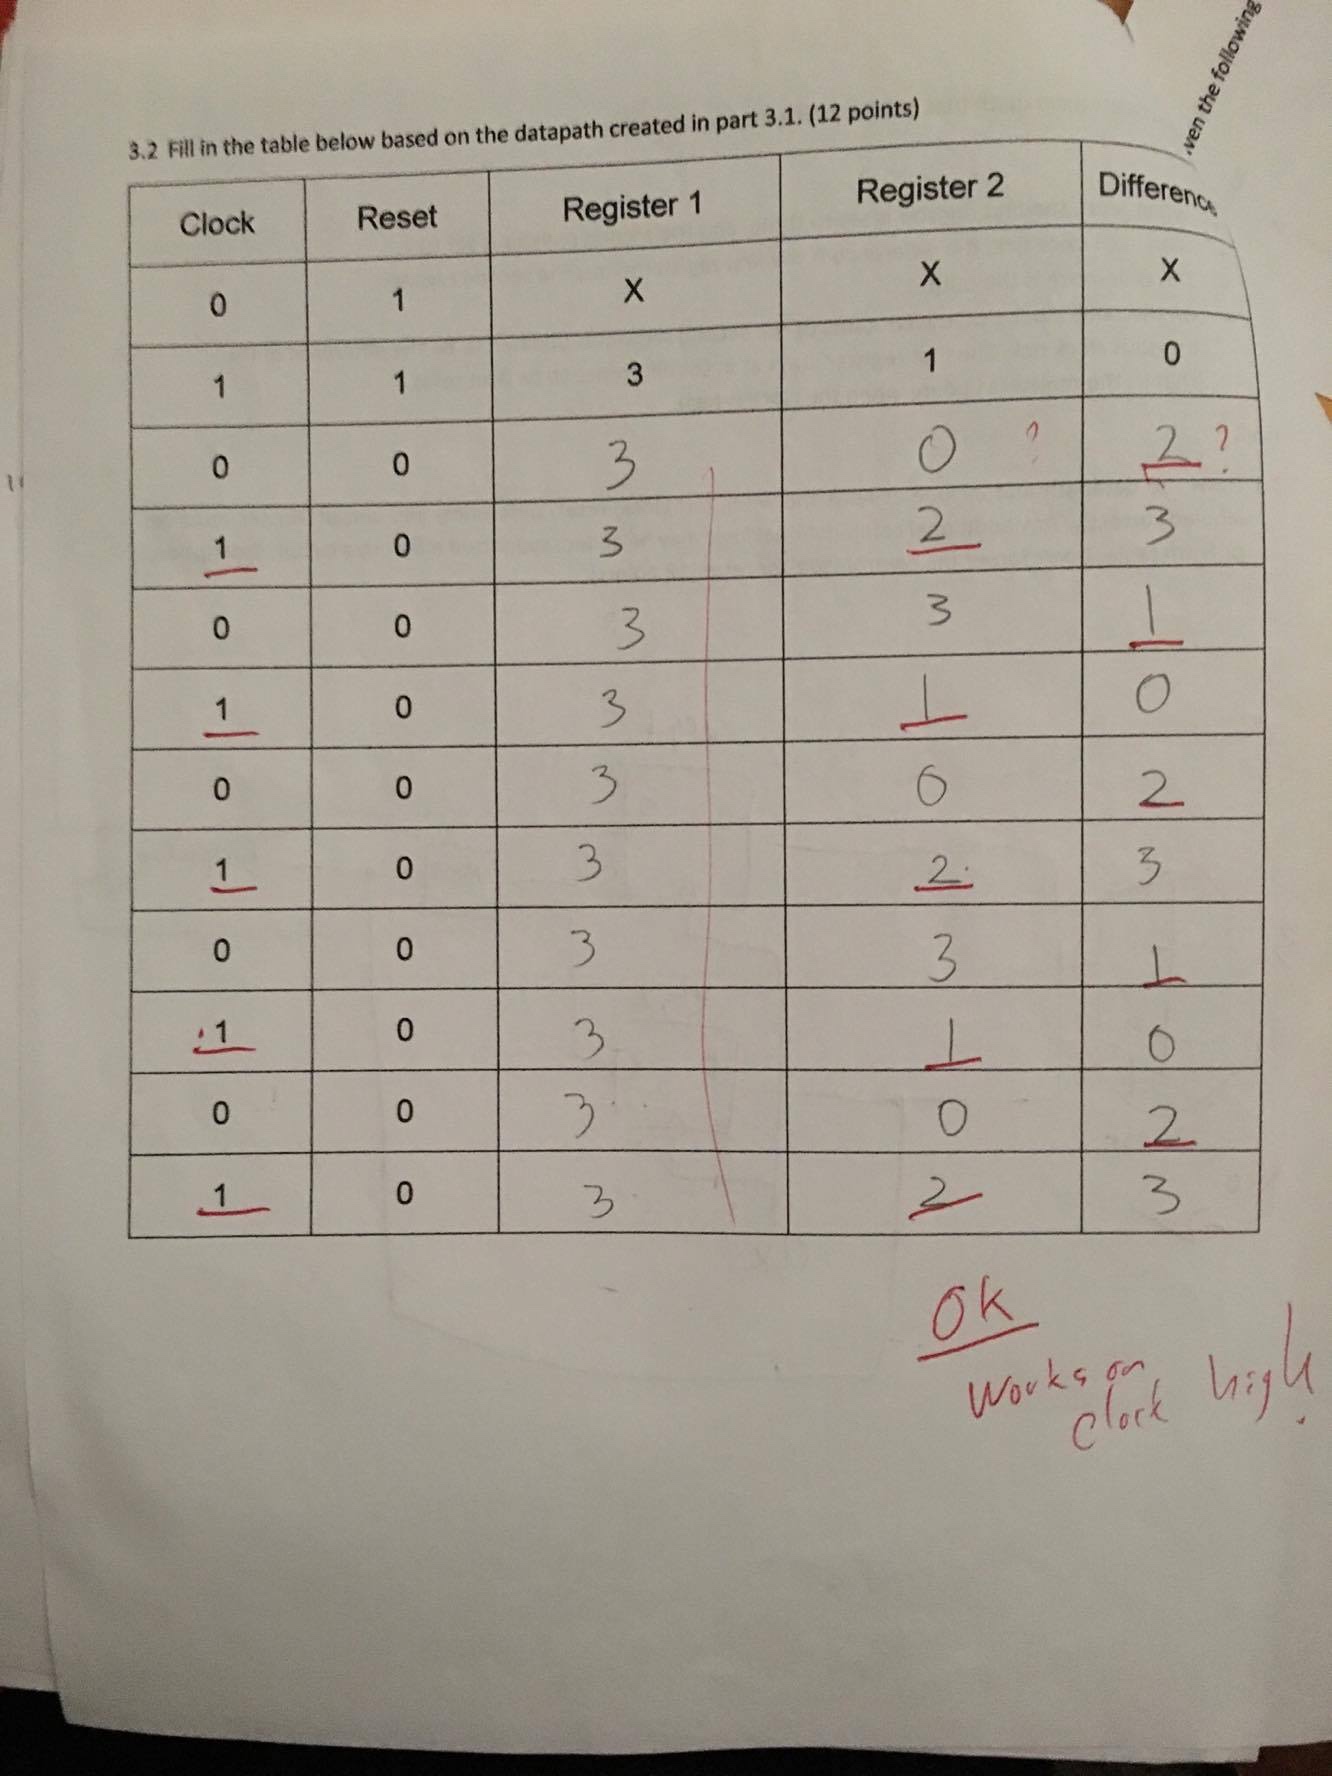 .ven the following
3.2 Fill in the table below based on the datapath created in part 3.1. (12 points)
Clock Reset Register 1 Register 2 Difference
0 1 X X X
1 1 3 1 0
0 0 3 0 ? 2 ?
1 0 3 2 3
0 0 3 3 1
1 0 3 1 0
0 0 3 0 2
1 0 3 2 3
0 0 3 3 1
1 0 3 1 0
0 0 3 0 2
1 0 3 2 3
OK
Works on
clock high.